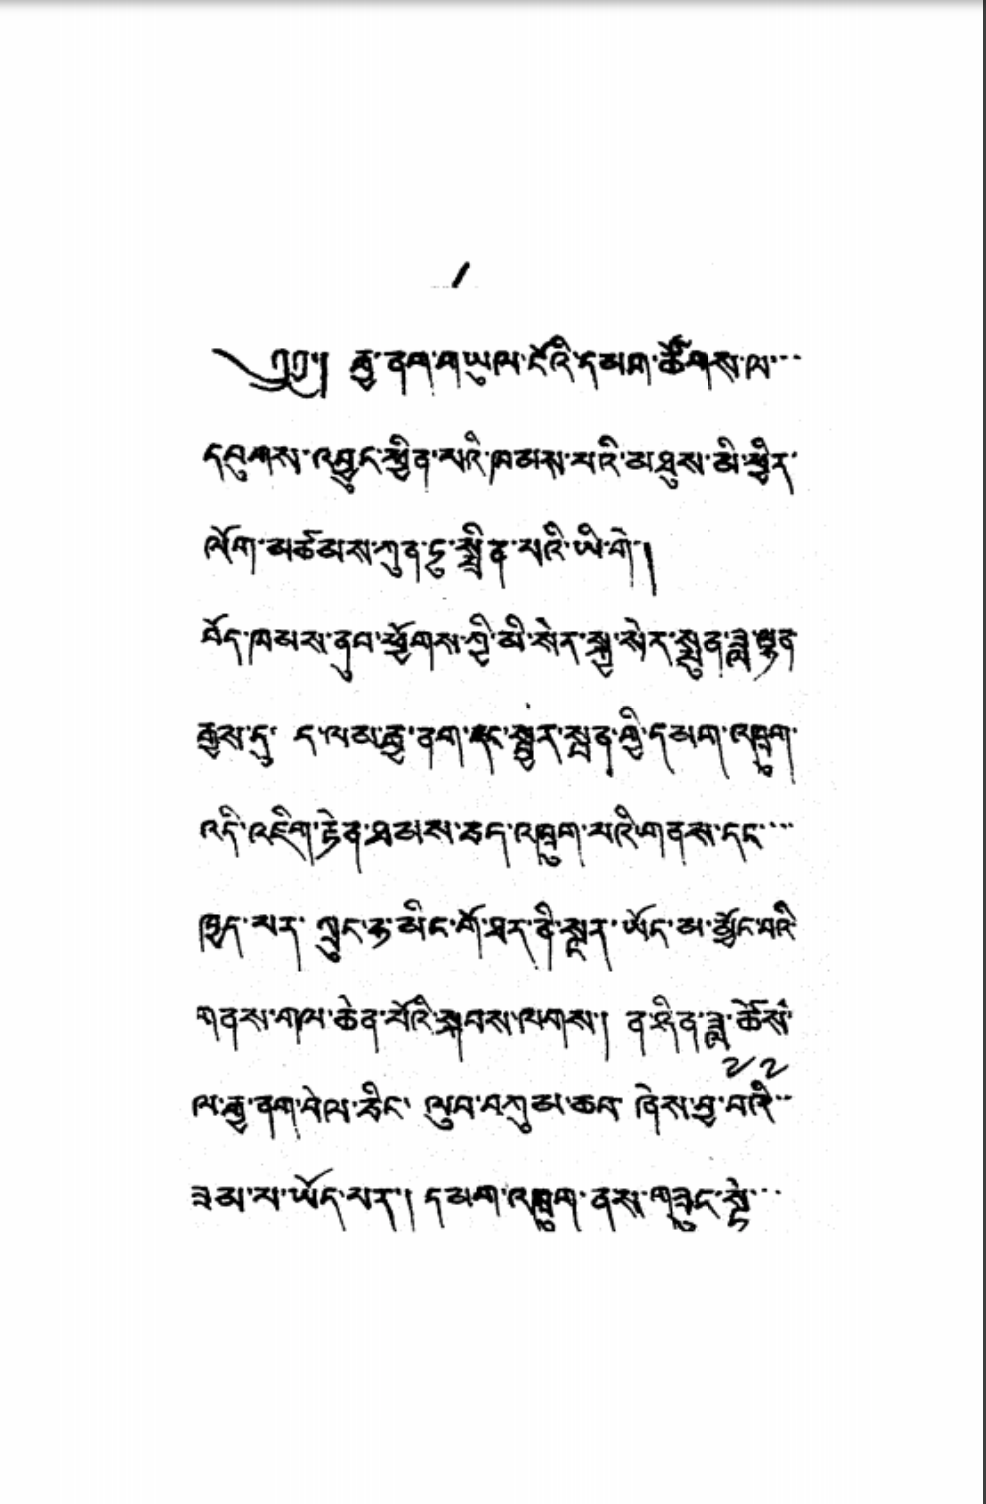 ༡
༄༅།། རྒྱ་ནག་ག་ཡུལ་ངོའི་དམག་ཚོགས་ལ་་་
དབུགས་འབྱུང་སྦྱིན་པའི་ཁམས་པའི་མ་ཐུས་མི་ཕྱིར་
ལོག་མཚམས་ཀུན་ཏུ་སྤྲིན་པའི་ཡི་གེ།
བོད་ཁམས་ནུབ་ཕྱོགས་ཀྱི་མི་སེར་སྐྱ་སེར་སྤུན་ཟླ་
རྣམས་དུ་ ད་ལམ་རྒྱ་ནག་དང་སྦྱར་སྤན་གྱི་དམག་འཁྲུག་
འདི་འཇིག་རྟེན་ཐམས་ཅད་འཁྲུག་པའི་གནས་དང་་་
ཁྱད་པར་ ཀླུང་རྟ་མིང་གོ་ཐར་ནི་སྔར་ཡོང་མ་མྱོང་བའི
གནས་གལ་ཆེན་པོའི་སྐབས་ལགས། ན་ཧིན་ཟླ་ཚེས་
༢༢
ལ་རྒྱ་ནག་པེལ་ཅིང་ ལུབ་བཀུམ་ཆབ་ ཞེས་བྱ་བའི་་
ཟམ་པ་ཡོད་པར། དམག་འཁྲུག་ནས་གཟུང་སྟེ་་་